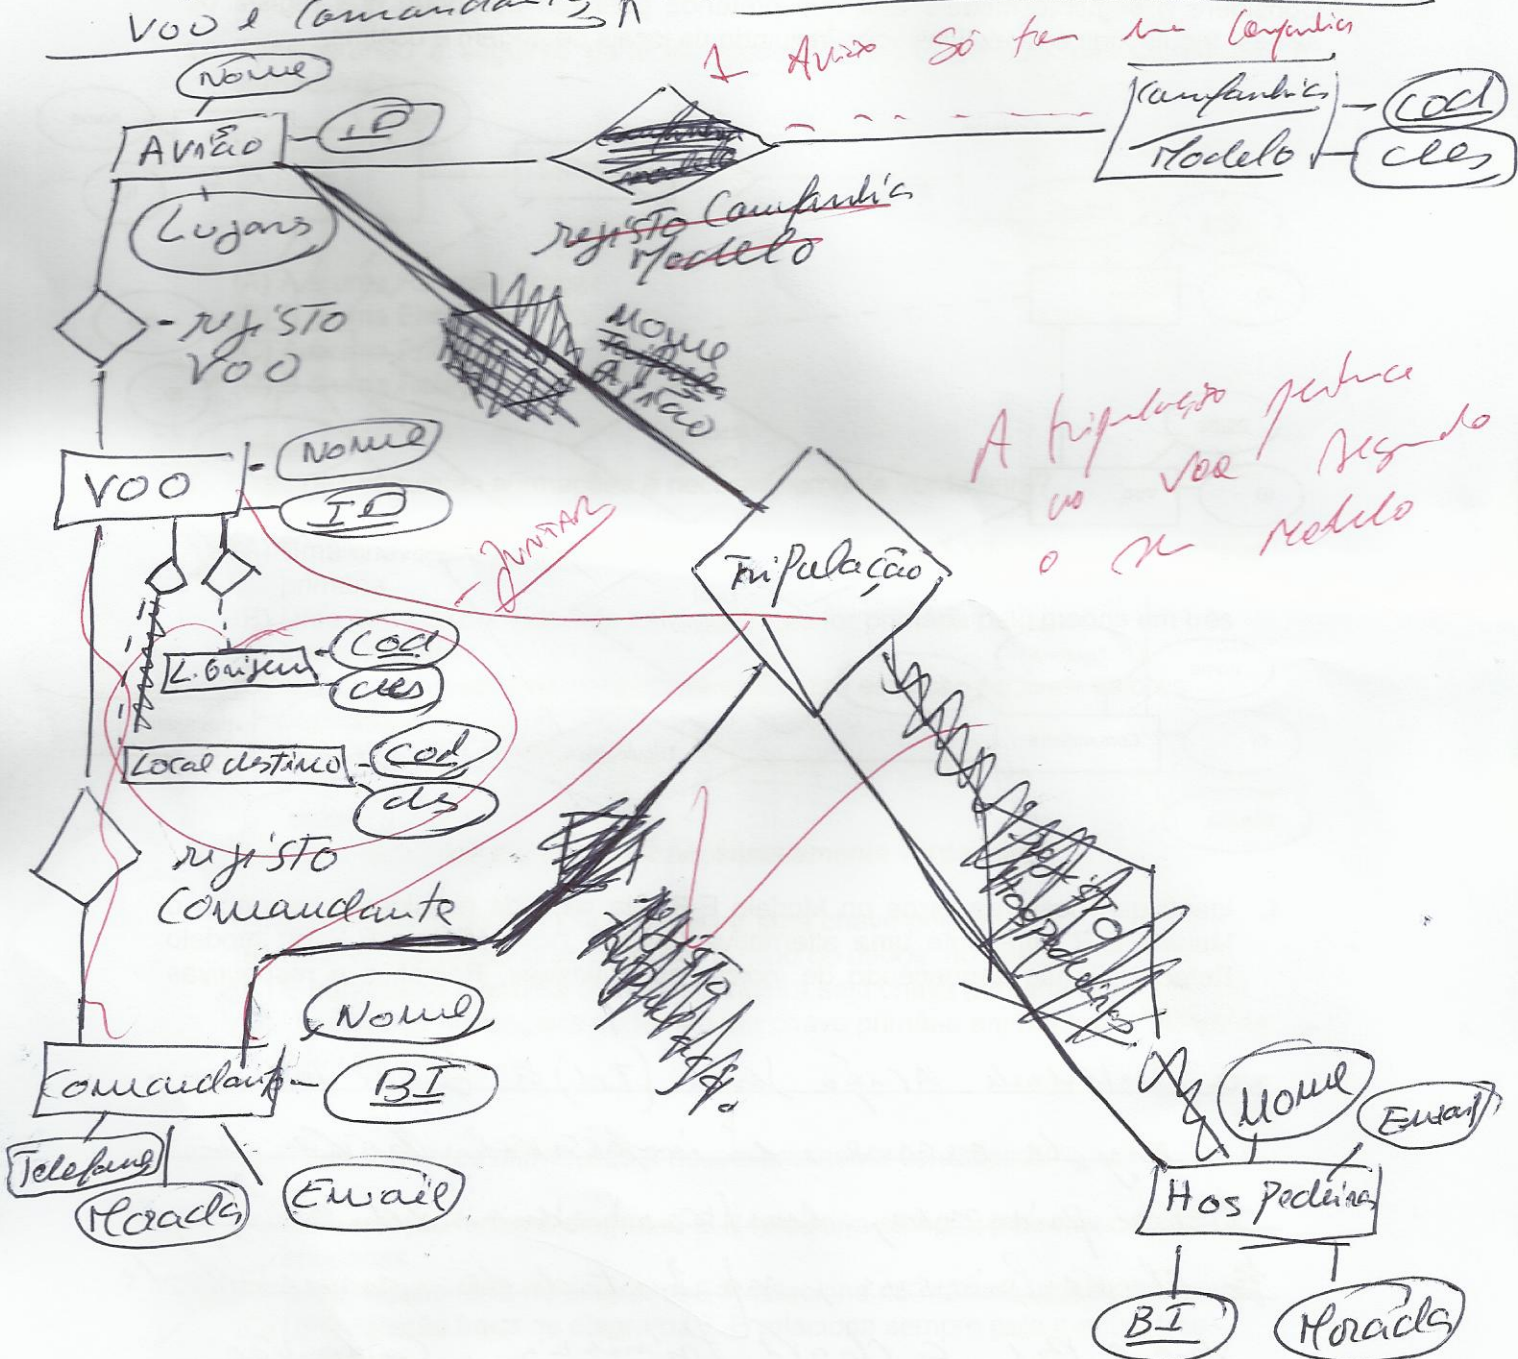 VOO e Comandante
1 Avião Só tem uma Companhia
Nome
Avião
ID
Lugares
Companhia
Modelo
cod
des
registo Companhia
Modelo
registo
VOO
Nome
Avião
VOO
Nome
ID
- JUNTAR
Tripulação
A tripulação pertence
ao voo segundo
o seu modelo
L. Origem
cod
des
Local destino
cod
des
registo
Comandante
registo
Hospedeiras
registo
Nome
BI
Comandante
Telefone
Morada
Email
Nome
Email
Hospedeiras
BI
Morada